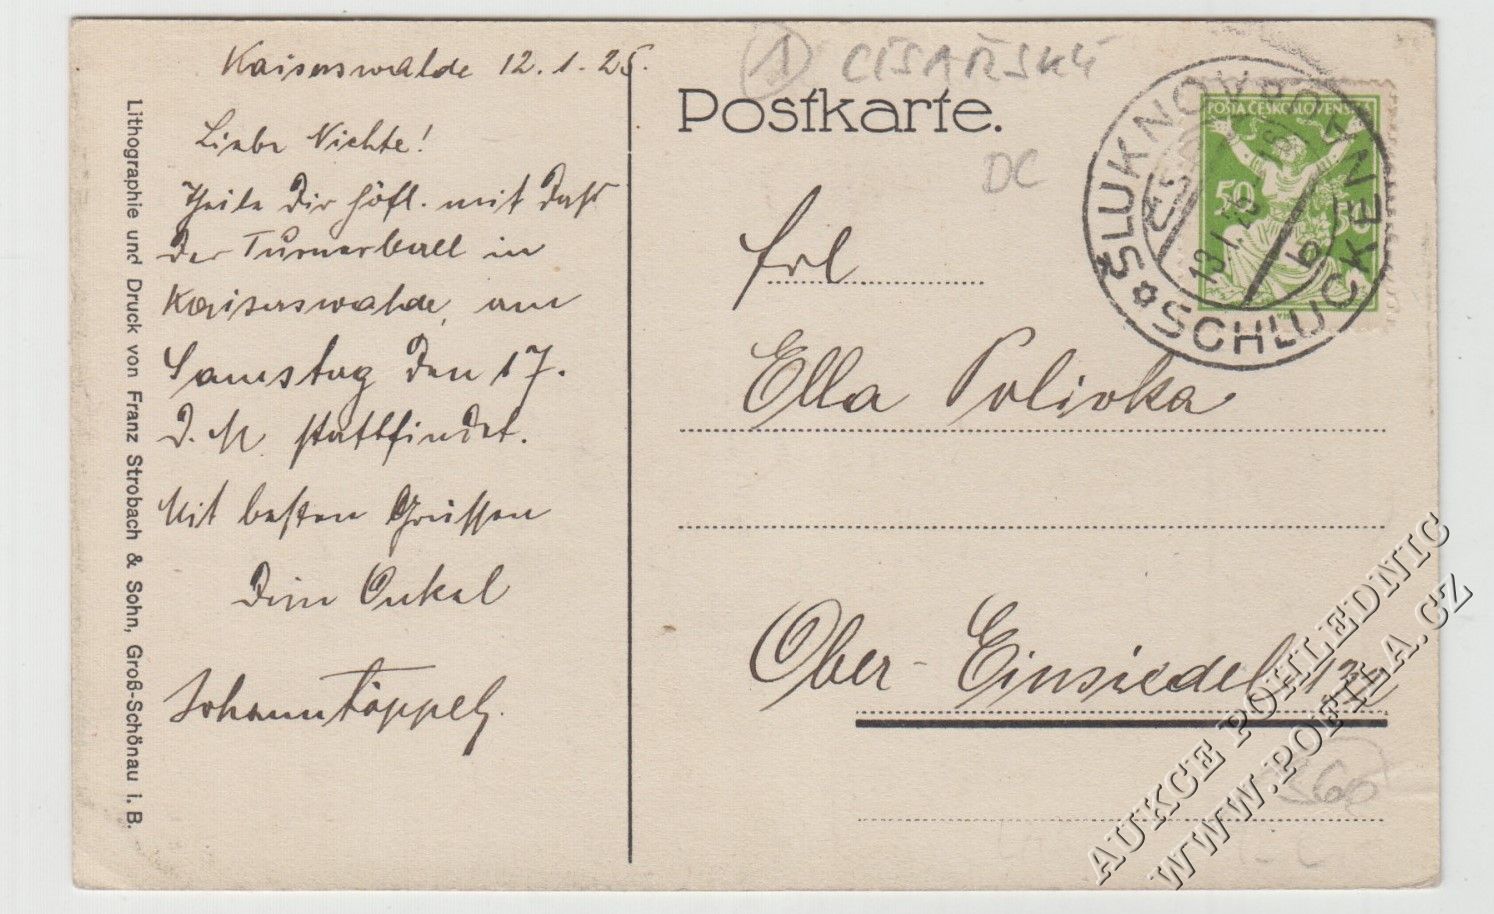 Kaiserswalde 12.1.25.
Liebe Nichte!
Theile Dir höfl. mit Daß
Der Turnerball in
Kaiserswalde, am
Samstag Den 17.
D. M. stattfindet.
Mit besten Grüssen
Dein Onkel
Johann Töppel
Lithographie und Druck von Franz Strobach & Sohn, Groß-Schönau i. B.
1 CÍSAŘSKÝ
Postkarte.
DC
POŠTA ČESKOSLOVENSKÁ
50
ŠLUKNOV
SCHLUCKENAU
13.I.25
b
Frl
Ella Polivka
Ober-Einsiedel
AUKCE POHLEDNIC
WWW.POFILA.CZ